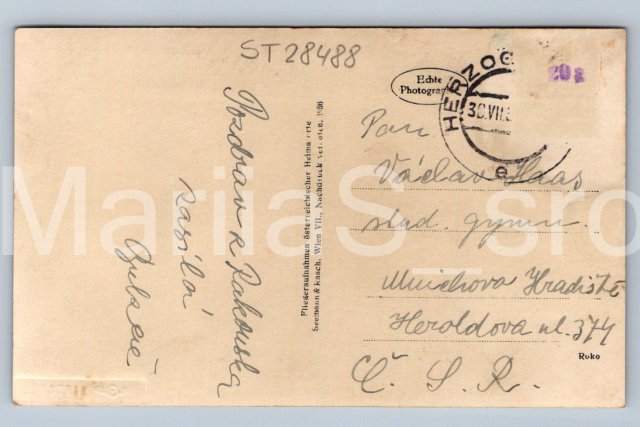 ST28488
Echte
HERZOG
20 g
e
Pozdrav z Rakouska
zasílá
Fliegeraufnahmen österreichischer Heimatorte
Seemann & Kasch, Wien VII., Nachdruck verboten, 1936
Pan
Václav Haas
stud. gymn.
Mnichova Hradiště
Heroldova ul. 374
Č. S. R.
Ruko
MariiaS_sro